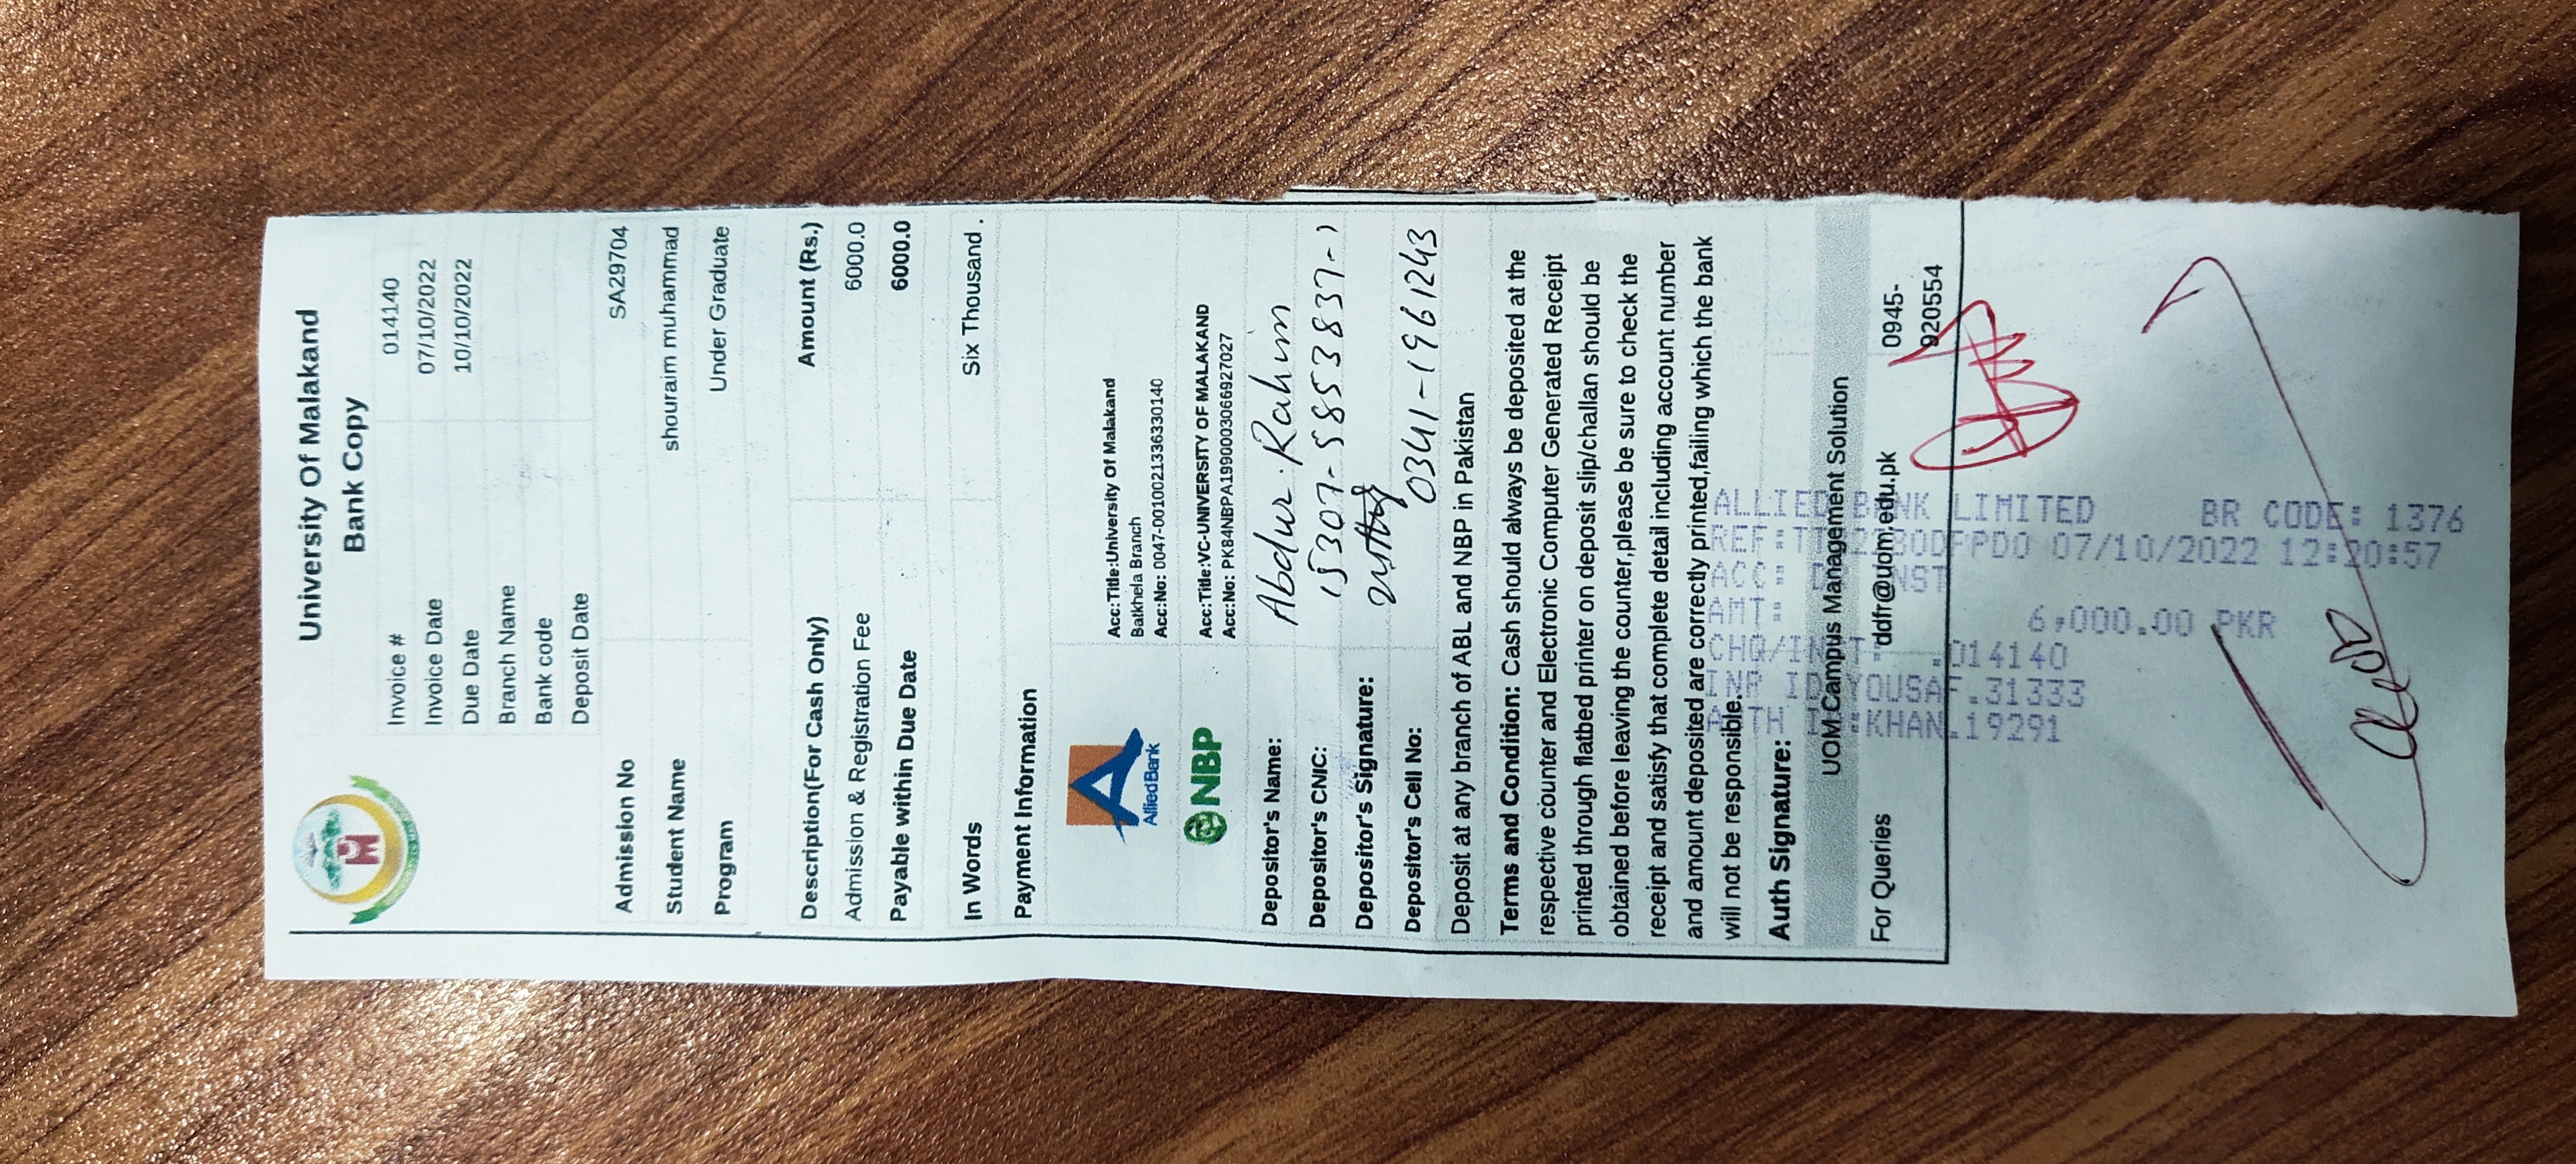 University Of Malakand
Bank Copy
Invoice # 014140
Invoice Date 07/10/2022
Due Date 10/10/2022
Branch Name
Bank code
Deposit Date
Admission No SA29704
Student Name shouraim muhammad
Program Under Graduate
Description(For Cash Only) Amount (Rs.)
Admission & Registration Fee 6000.0
Payable within Due Date 6000.0
In Words Six Thousand .
Payment Information
Allied Bank
Acc:Title:University Of Malakand
Batkhela Branch
Acc:No: 0047-0010021336330140
NBP
Acc:Title:VC-UNIVERSITY OF MALAKAND
Acc:No: PK84NBPA1990003066927027
Depositor's Name: Abdur Rahim
Depositor's CNIC: 15307-5853837-1
Depositor's Signature:
Depositor's Cell No: 0341-1961243
Deposit at any branch of ABL and NBP in Pakistan
Terms and Condition: Cash should always be deposited at the
respective counter and Electronic Computer Generated Receipt
printed through flatbed printer on deposit slip/challan should be
obtained before leaving the counter,please be sure to check the
receipt and satisfy that complete detail including account number
and amount deposited are correctly printed,failing which the bank
will not be responsible.
Auth Signature:
UOM Campus Management Solution
For Queries ddfr@uom.edu.pk 0945-
920554
ALLIED BANK LIMITED BR CODE: 1376
07/10/2022 12:20:57
ACC:
AMT: 6,000.00 PKR
.014140
YOUSAF.31333
KHAN.19291